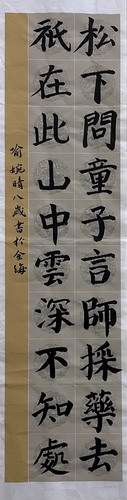 松下問童子言師採藥去
祇在此山中雲深不知處
俞婉晴八歲書於金海